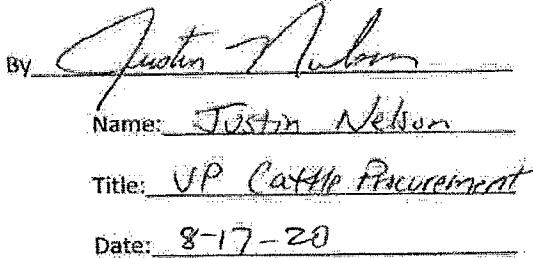 By Justin Nelson
Name: Justin Nelson
Title: VP Cattle Procurement
Date: 8-17-20